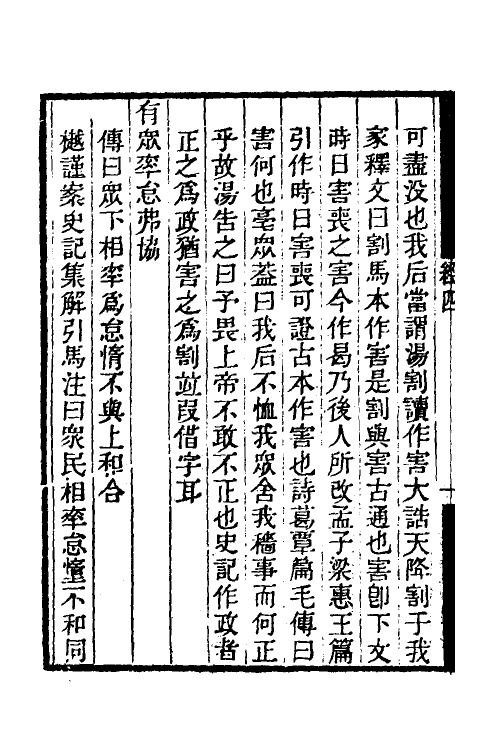 可盡没也我后當謂湯割讀作害大誥天降割于我
家釋文曰割馬本作害是割與害古通也害卽下文
時日害喪之害今作曷乃後人所改孟子梁惠王篇
引作時日害喪可證古本作害也詩葛覃篇毛傳曰
害何也亳衆葢曰我后不恤我衆舍我穡事而何正
乎故湯告之曰予畏上帝不敢不正也史記作政者
正之爲政猶害之爲割竝叚借字耳
有眾率怠弗協
傳曰眾下相率爲怠惰不與上和合
樾謹案史記集解引馬注曰衆民相率怠惰不和同
經四